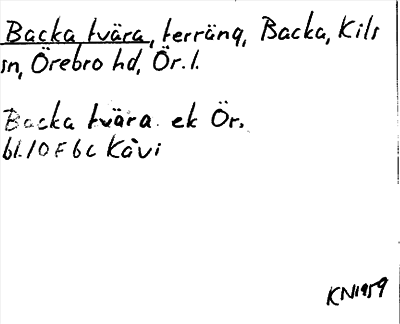 Backa tvära, terräng, Backa, Kils
sn, Örebro hd, Ör. l.
Backa tvära ek Ör.
bl. 10F 6c Kåvi
KN1959